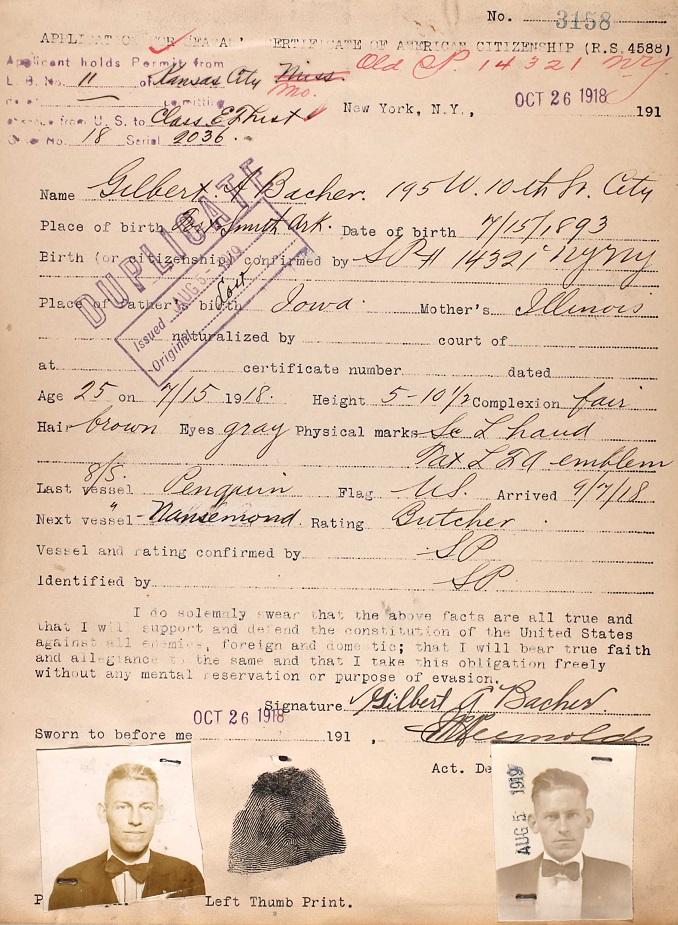 No. 3158
APPLICATION FOR SEAMAN'S CERTIFICATE OF AMERICAN CITIZENSHIP (R.S.4588)
Old S.P. 14321 NY.
Applicant holds Permit from
L. B. No. 11 of Kansas City Miss. Mo.
from U. S. to Class E
No. 18 Serial 2036.
New York, N.Y., OCT 26 1918 191
Name Gilbert A Bacher. 195 W. 10th St. City
Place of birth Fort Smith Ark. Date of birth 7/15/1893
Birth (or citizenship) confirmed by SP# 14321 NYNY
DUPLICATE
Issued AUG 5 - 1919
Original Lost
Place of father's birth Iowa. Mother's Illinois
naturalized by court of
at certificate number dated
Age 25 on 7/15 1918. Height 5-10 1/2 Complexion fair
Hair brown Eyes gray Physical marks Sc L hand
L emblem
Last vessel S/S. Penguin Flag U.S. Arrived 9/7/18
Next vessel " Nansemond. Rating Butcher
Vessel and rating confirmed by SP
Identified by SP
I do solemnly swear that the above facts are all true and
that I will support and defend the constitution of the United States
against all enemies, foreign and domestic; that I will bear true faith
and allegiance to the same and that I take this obligation freely
without any mental reservation or purpose of evasion.
Signature Gilbert A Bacher.
Sworn to before me OCT 26 1918 191 ,
Act. De
AUG 5- 1919
Left Thumb Print.